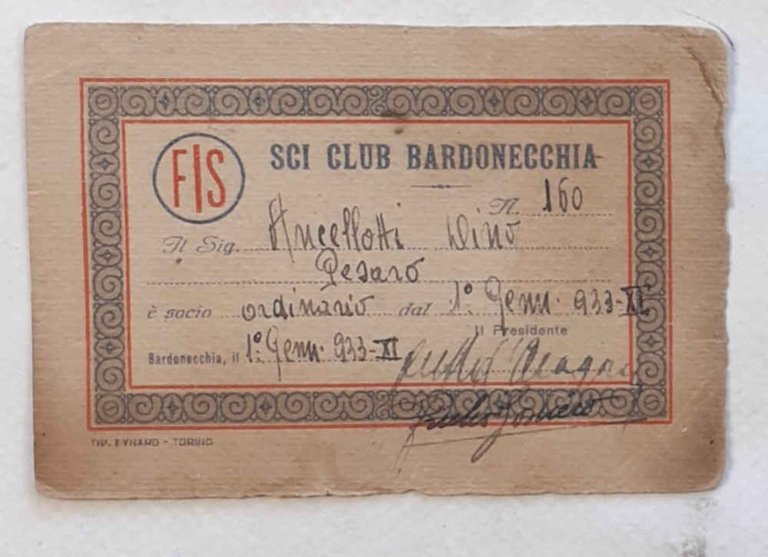 FIS
SCI CLUB BARDONECCHIA
N. 160
Il Sig. Ancellotti Dino
Pesaro
è socio ordinario dal 1° Genn. 933-XI
Il Presidente
Bardonecchia, il 1° Genn. 933-XI
TIP. EYNARD - TORINO